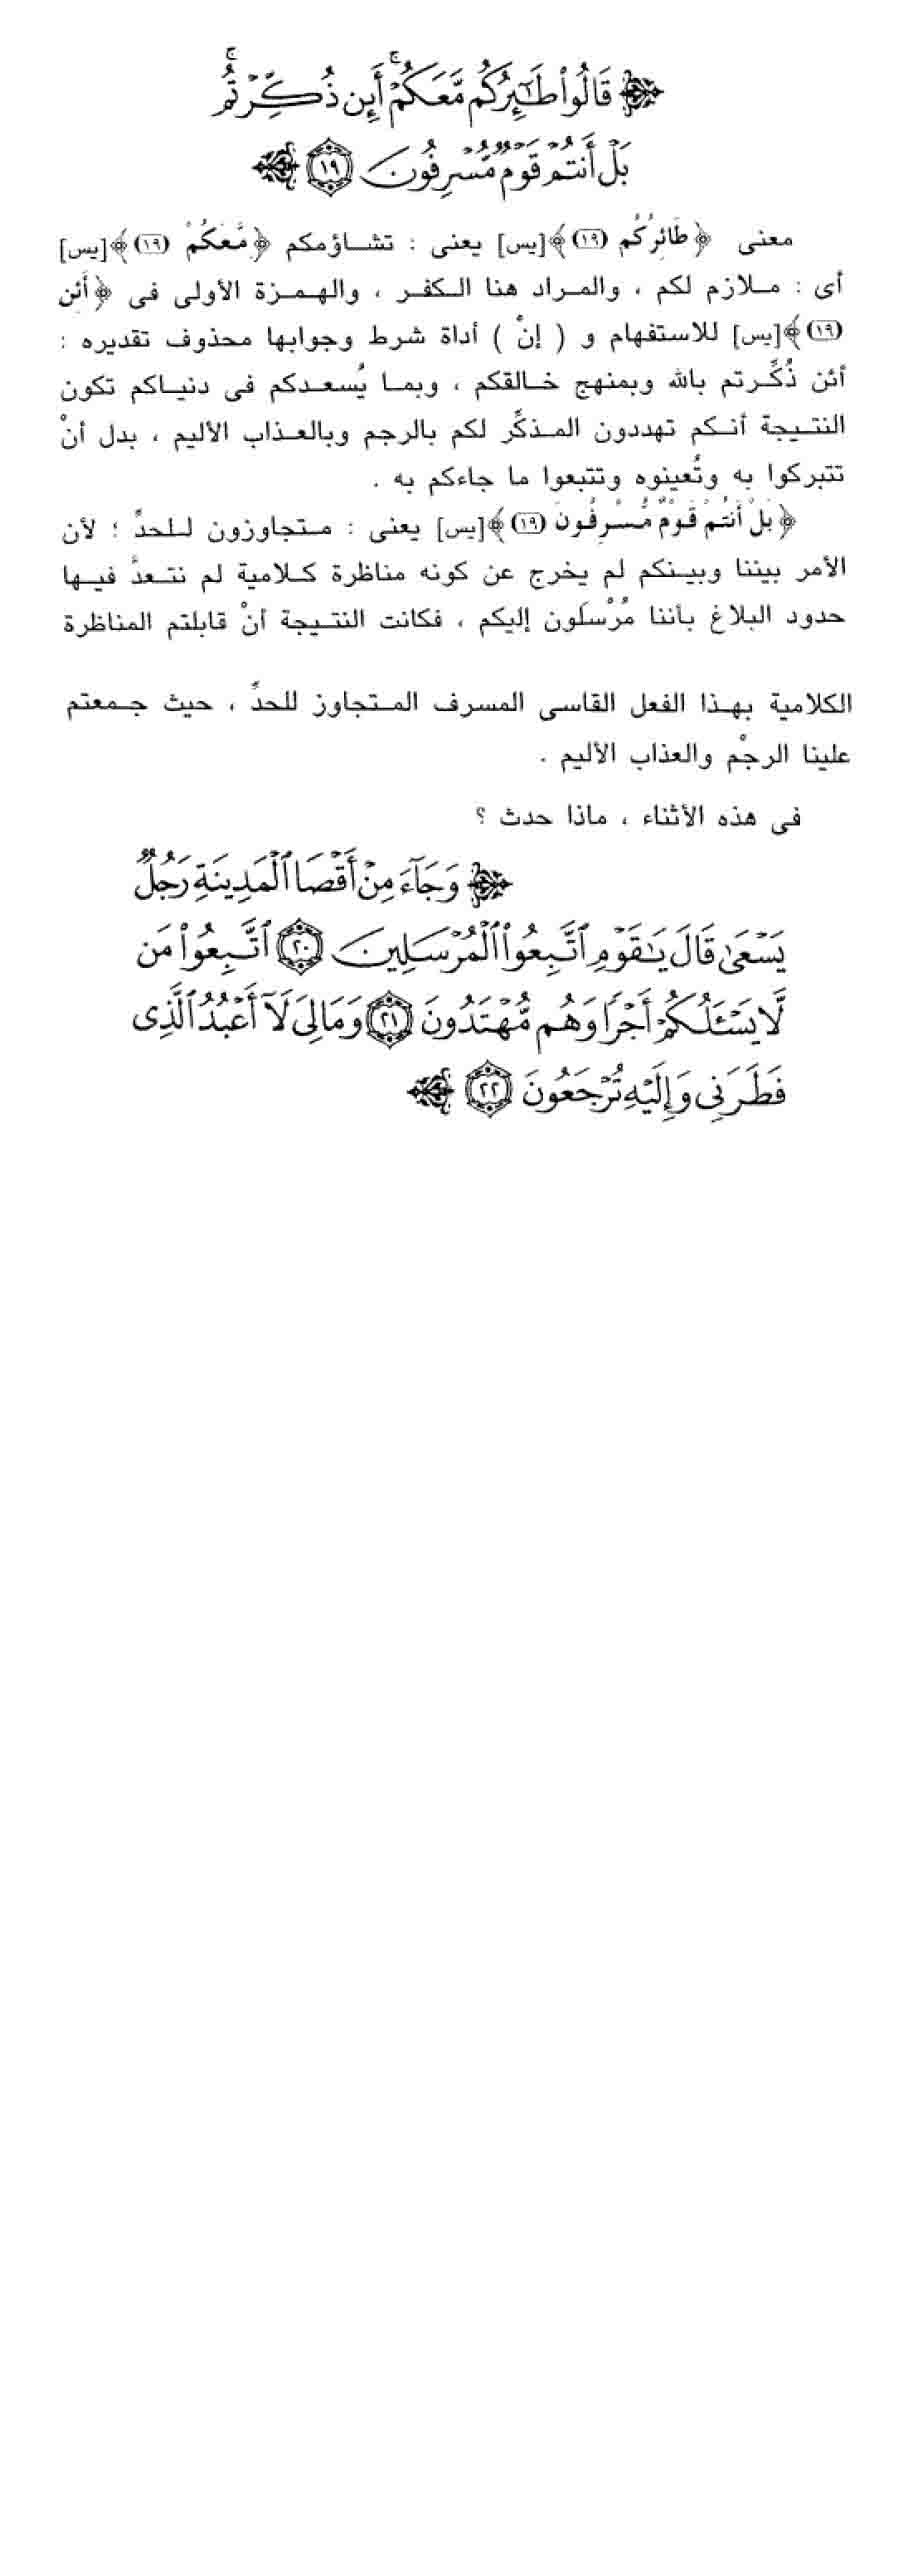 ﴿ قَالُوا۟ طَـٰٓئِرُكُم مَّعَكُمْ ۚ أَئِن ذُكِّرْتُم ۚ
بَلْ أَنتُمْ قَوْمٌ مُّسْرِفُونَ ١٩ ﴾
معنى ﴿ طَائِرُكُم (١٩) ﴾ [يس] يعنى : تشاؤمكم ﴿ مَّعَكُمْ (١٩) ﴾ [يس]
أى : ملازم لكم ، والمراد هنا الكفر ، والهمزة الأولى فى ﴿ أَئِن
(١٩) ﴾ [يس] للاستفهام و ( إنْ ) أداة شرط وجوابها محذوف تقديره :
أئن ذُكِّرتم بالله وبمنهج خالقكم ، وبما يُسعدكم فى دنياكم تكون
النتيجة أنكم تهددون المذكِّر لكم بالرجم وبالعذاب الأليم ، بدل أنْ
تتبركوا به وتُعينوه وتتبعوا ما جاءكم به .
﴿ بَلْ أَنتُمْ قَوْمٌ مُّسْرِفُونَ (١٩) ﴾ [يس] يعنى : متجاوزون للحدِّ ؛ لأن
الأمر بيننا وبينكم لم يخرج عن كونه مناظرة كلامية لم نتعدَّ فيها
حدود البلاغ بأننا مُرْسلَون إليكم ، فكانت النتيجة أنْ قابلتم المناظرة
الكلامية بهذا الفعل القاسى المسرف المتجاوز للحدِّ ، حيث جمعتم
علينا الرجْم والعذاب الأليم .
فى هذه الأثناء ، ماذا حدث ؟
﴿ وَجَآءَ مِنْ أَقْصَا ٱلْمَدِينَةِ رَجُلٌ
يَسْعَىٰ قَالَ يَـٰقَوْمِ ٱتَّبِعُوا۟ ٱلْمُرْسَلِينَ ٢٠ ٱتَّبِعُوا۟ مَن
لَّا يَسْـَٔلُكُمْ أَجْرًا وَهُم مُّهْتَدُونَ ٢١ وَمَا لِىَ لَآ أَعْبُدُ ٱلَّذِى
فَطَرَنِى وَإِلَيْهِ تُرْجَعُونَ ٢٢ ﴾